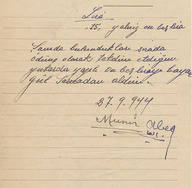 Lira
15. yalnız on beş lira
Samda bulundukları sırada
ödünç olarak takdim ettiğim
yukarda yazılı on beş lirayı bayan
Gül Samadan aldım.
27.9.944
Münir